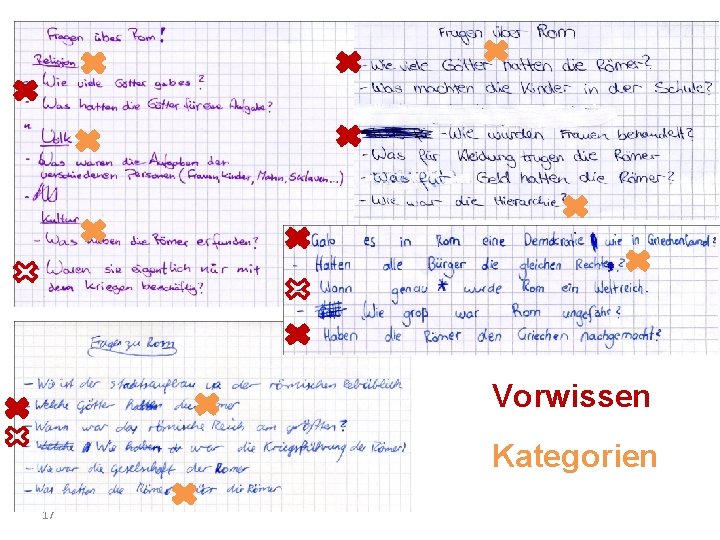 Fragen über Rom!
Religion
- Wie viele Götter gabes?
- Was hatten die Götter für eine Aufgabe?
Volk
- Was waren die Aufgaben der
verschiedenen Personen (Frauen, Kinder, Mann, Sklaven...)
Kultur
- Was haben die Römer erfunden?
- Waren sie eigentlich nur mit
dem Kriegen beschäftig?
Fragen über Rom
- Wie viele Götter hatten die Römer?
- Was machten die Kinder in der Schule?
- Wie wurden Frauen behandelt?
- Was für Kleidung trugen die Römer
- Was für Geld hatten die Römer?
- Wie war die Hierarchie?
Gab es in Rom eine Demokratie wie in Griechenland?
- Hatten alle Bürger die gleichen Rechte?
- Wann genau wurde Rom ein Weltreich.
- Wie groß war Rom ungefähr?
Haben die Römer den Griechen nachgemacht?
Fragen zu Rom
- Wo ist der Stadtaufbau der römischen
- Welche Götter hatten die Römer
- Wann war das römische Reich am größten?
- Wie war die Kriegsführung der Römer?
- Wie war die Gesellschaft der Römer
- Was hatten die Römer für die Römer
Vorwissen
Kategorien
17